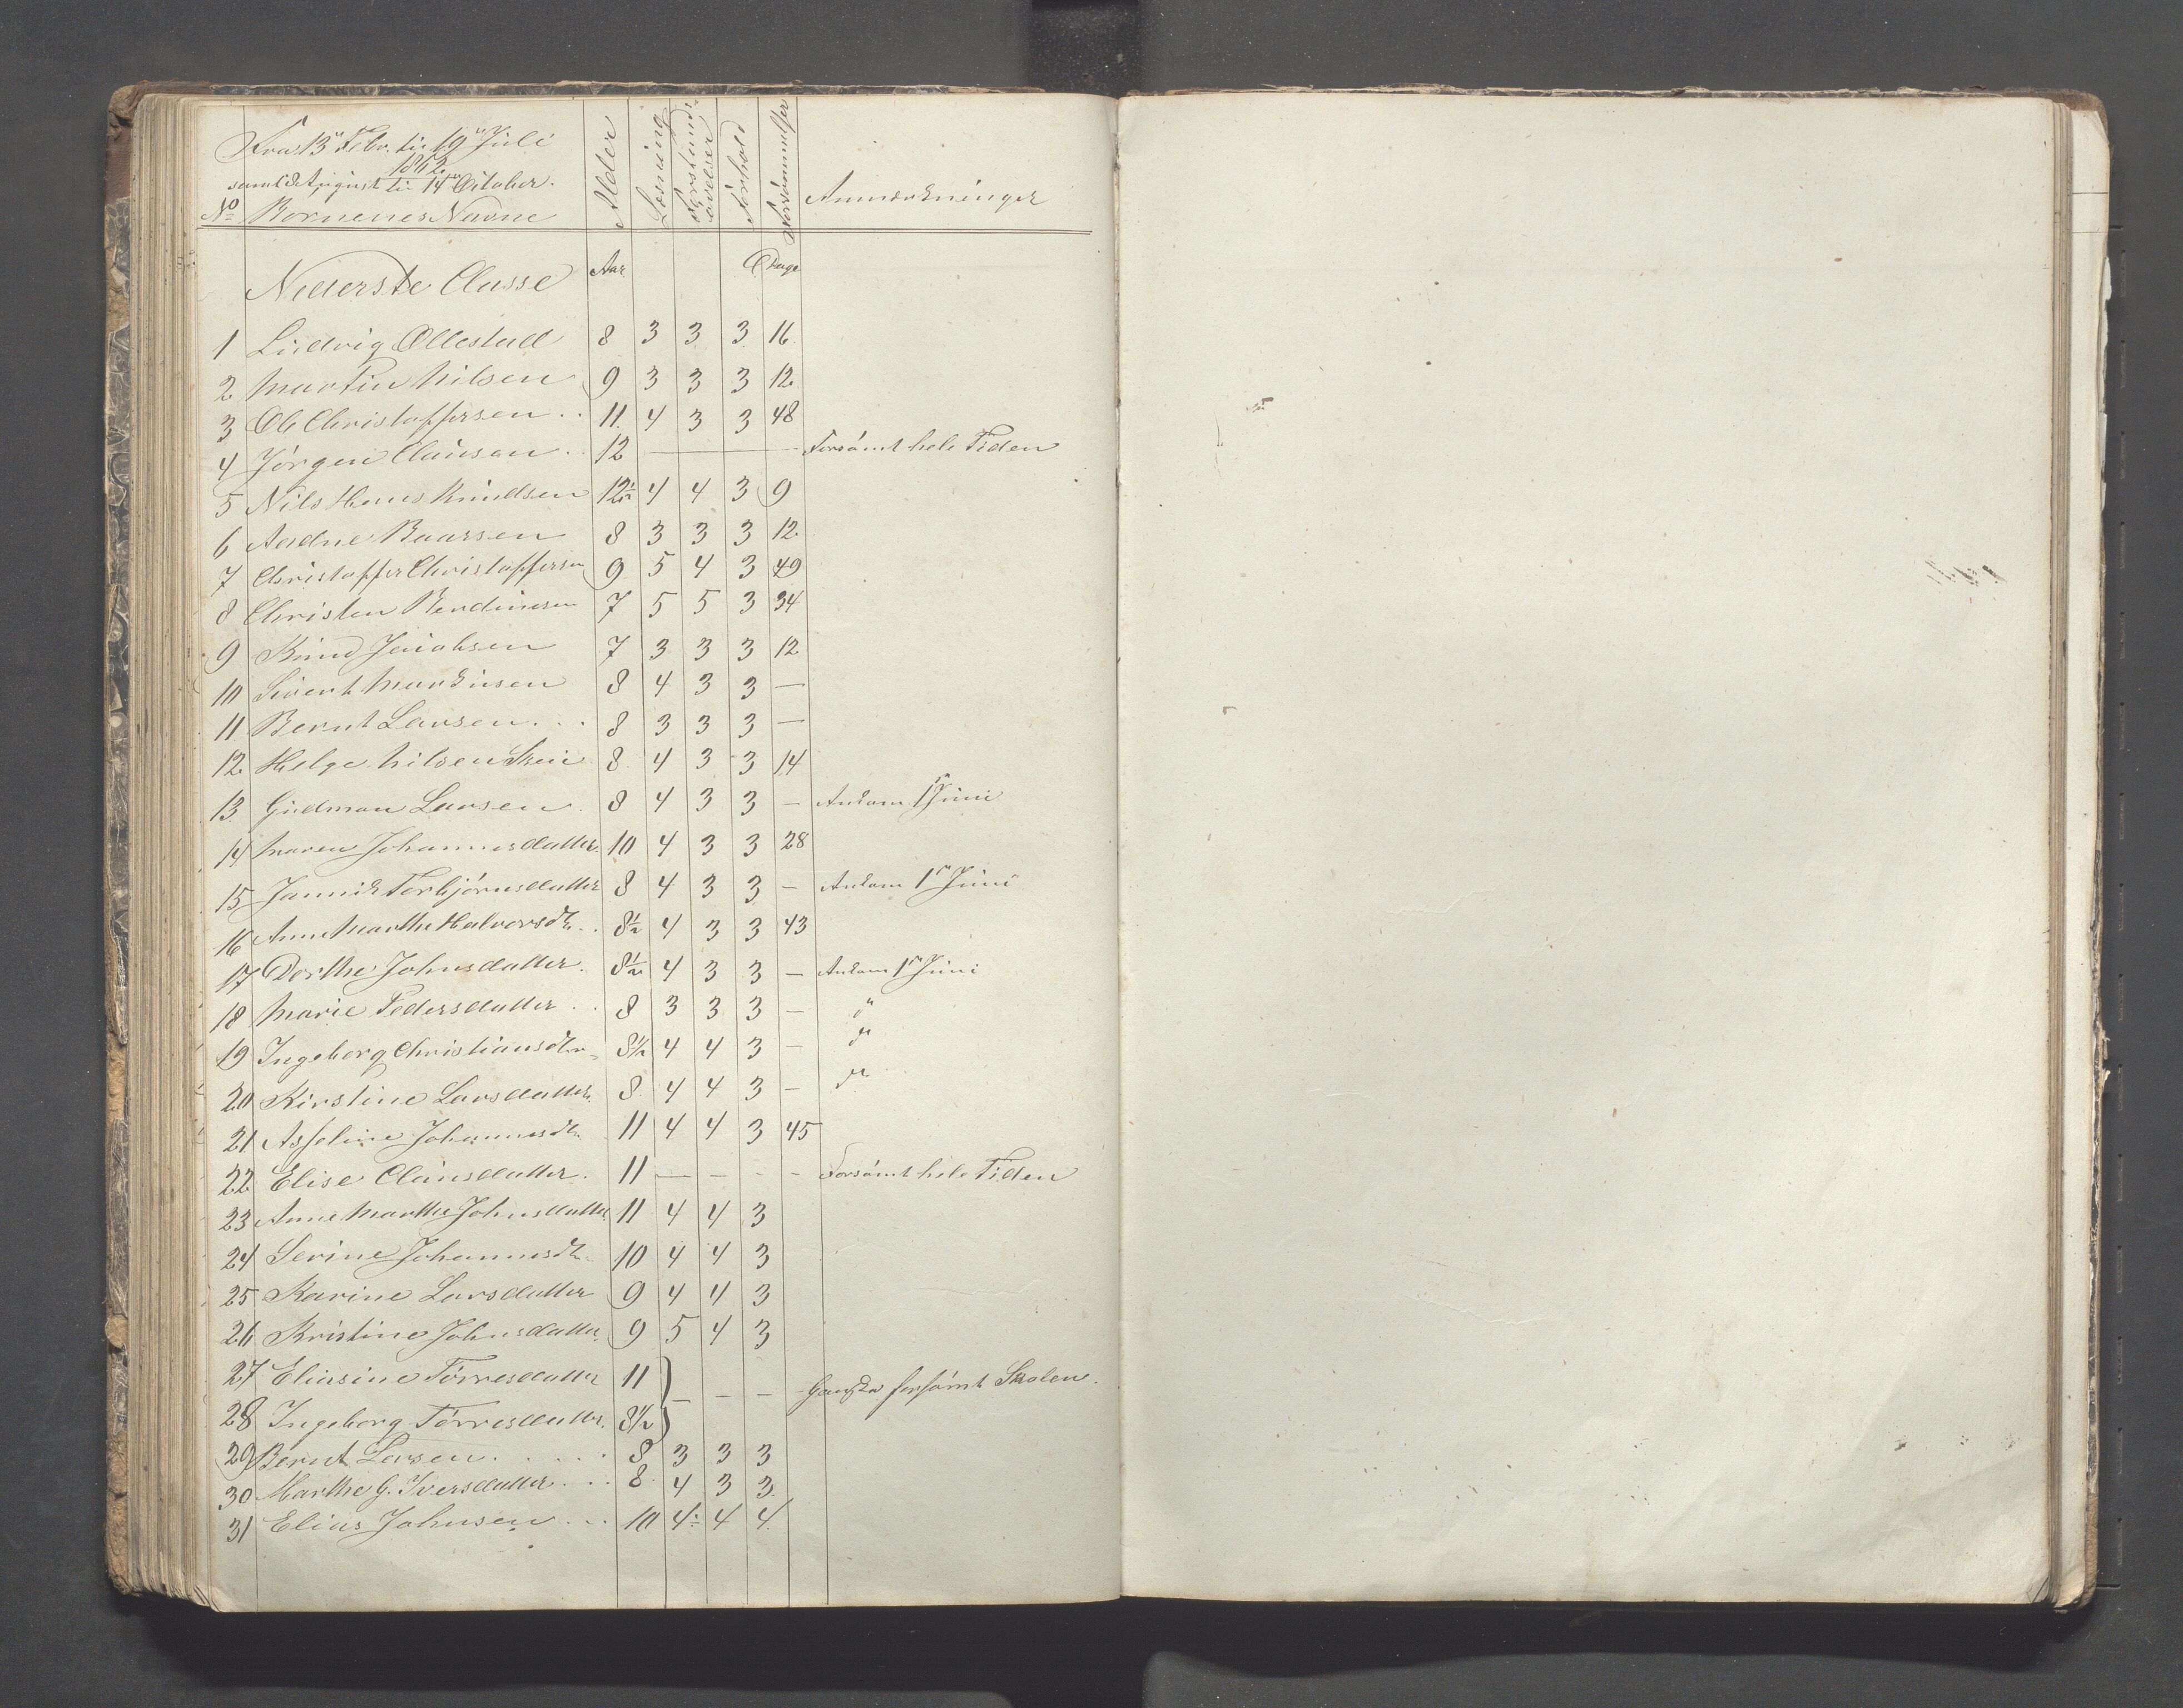 Fra 13de Febr. til 19de Juli
1862
samt 18 August til 14de October.
No Børnenes Navne Alder Læsning Forstands øvelser Forhold Forsømmelser Anmærkninger
Nederste Classe Aar Dage
1 Ludvig Ollestad 8 3 3 3 16
2 Martin Nilsen 9 3 3 3 12
3 Ole Christoffersen 11 4 3 3 48
4 Jörgen Clausen 12 — Forsömt hele Tiden
5 Nils Hans Knudsen 12½ 4 4 3 9
6 Aadne Baarsen 8 3 3 3 12
7 Christoffer Christoffersen 9 5 4 3 49
8 Christen 7 5 5 3 34
9 Knud Jacobsen 7 3 3 3 12
10 Sivert Markusen 8 4 3 3 —
11 Bernt Larsen 8 3 3 3 —
12 Helge Nilsen 8 4 3 3 14
13 Gudman Larsen 8 4 3 3 — Ankom 1ste Juni
14 Maren Johannesdatter 10 4 3 3 28
15 Jannik Torbjörnsdatter 8 4 3 3 — Ankom 1ste Juni
16 Anne Marthe Halvorsdtr. 8½ 4 3 3 43
17 Dorthe Johnsdatter 8½ 4 3 3 — Ankom 1ste Juni
18 Marie Pedersdatter 8 3 3 3 — "
19 Ingeborg Christiansdtr. 8½ 4 4 3 — "
20 Kirstine Larsdatter 8 4 4 3 — "
21 Asseline Johannesdtr. 11 4 4 3 45
22 Elise Clausdatter 11 — — - - Forsömt hele Tiden
23 Anne Marthe Johnsdatter 11 4 4 3
24 Serine Johannesdtr. 10 4 4 3
25 Karine Larsdatter 9 4 4 3
26 Kristine Johnsdatter 9 5 4 3
27 Eliasine Törresdatter 11 } — — — Ganske forsömt Skolen.
28 Ingeborg Törresdatter 8½
29 Bernt Larsen 8 3 3 3
30 Marthe G. Iversdatter 8 4 3 3
31 Elias Johnsen 10 4 4 4